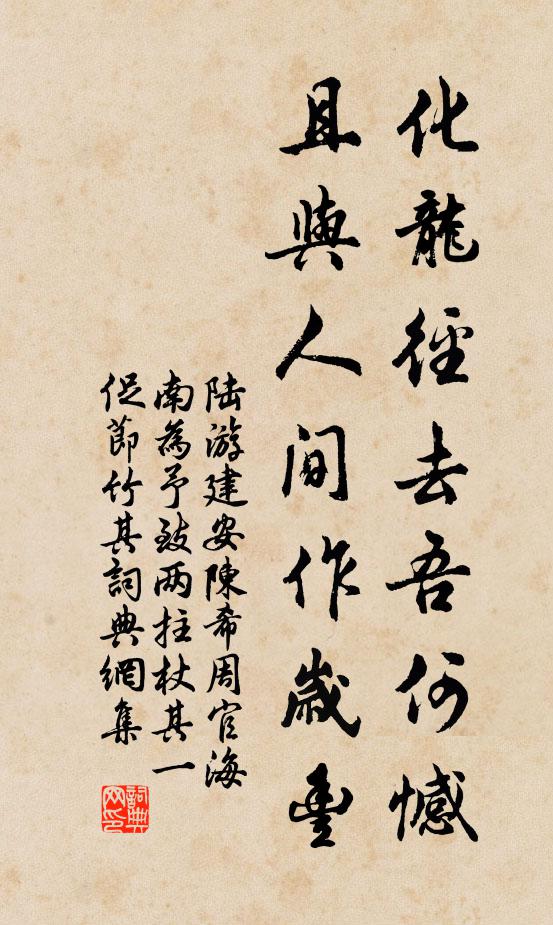 化龍徑去吾何憾
且與人间作歲豊
陆游建安陳希周官海
南為予致两拄杖其一
促節竹其詞典網集
詞典网印